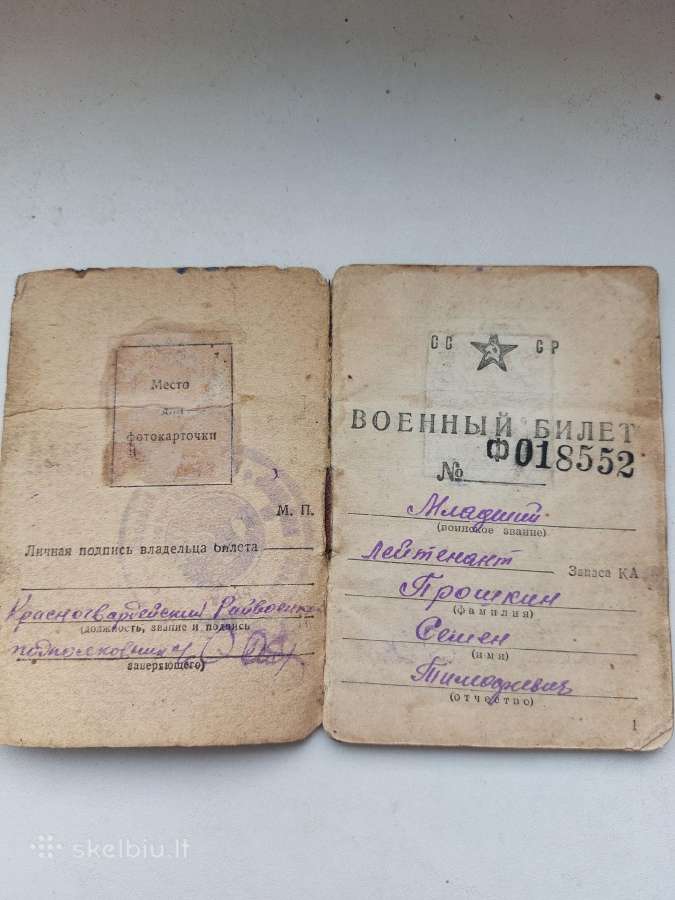 Место
для
фотокарточки
М. П.
Личная подпись владельца билета
Красногвардейский Райвоенко
(должность, звание и подпись
подполковник
заверяющего)
СС СР
ВОЕННЫЙ БИЛЕТ
№ Ф018552
Младший
(воинское звание)
лейтенант Запаса КА
Прошкин
(фамилия)
Семен
(имя)
Тимофеевич
(отчество)
1
skelbiu.lt